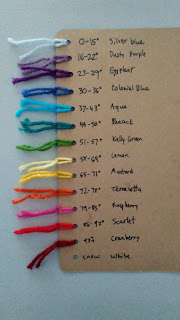 0-15° Silver blue
16-22° Dusty Purple
23-29° Eggplant
30-36° Colonial Blue
37-43° Aqua
44-50° Peacock
51-57° Kelly Green
58-64° Lemon
65-71° Mustard
72-78° Terracotta
79-85° Raspberry
86-92° Scarlet
93+ Cranberry
snow White